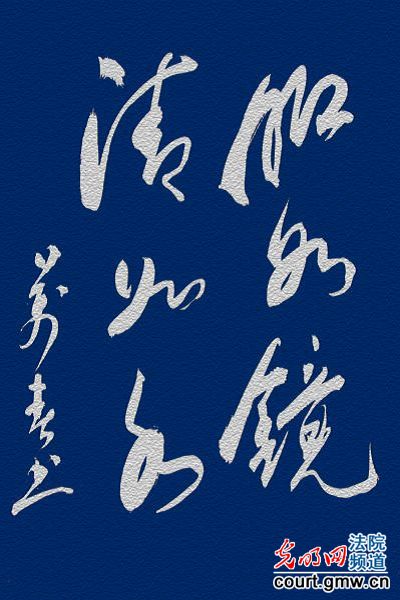 明如鏡
清如水
萬春书
光明网
法院
频道
court.gmw.cn